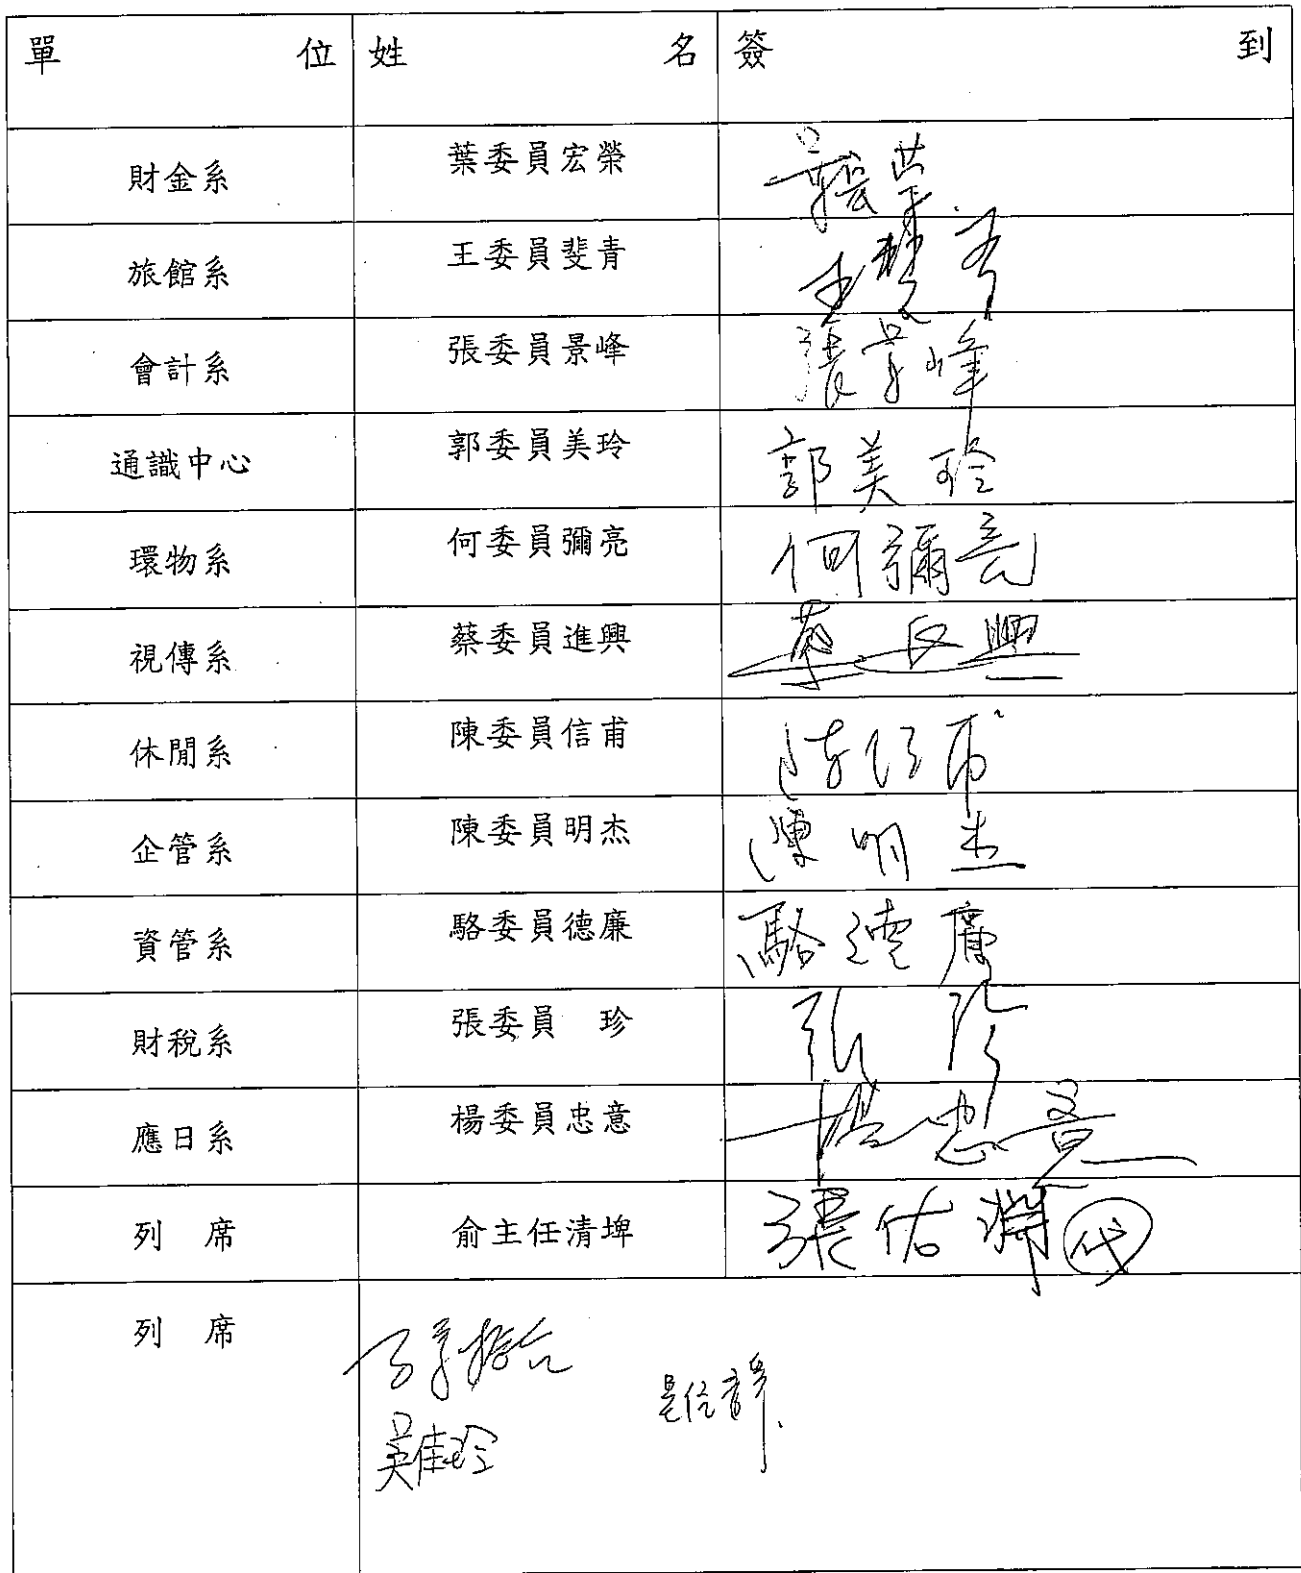 單位 姓名 簽到
財金系 葉委員宏榮
旅館系 王委員斐青 王斐青
會計系 張委員景峰 張景峰
通識中心 郭委員美玲 郭美玲
環物系 何委員彌亮 何彌亮
視傳系 蔡委員進興 蔡進興
休閒系 陳委員信甫 陳信甫
企管系 陳委員明杰 陳明杰
資管系 駱委員德廉 駱德廉
財稅系 張委員 珍 張珍
應日系 楊委員忠意 楊忠意
列 席 俞主任清埤 張佑 代
列 席
吳佳玲